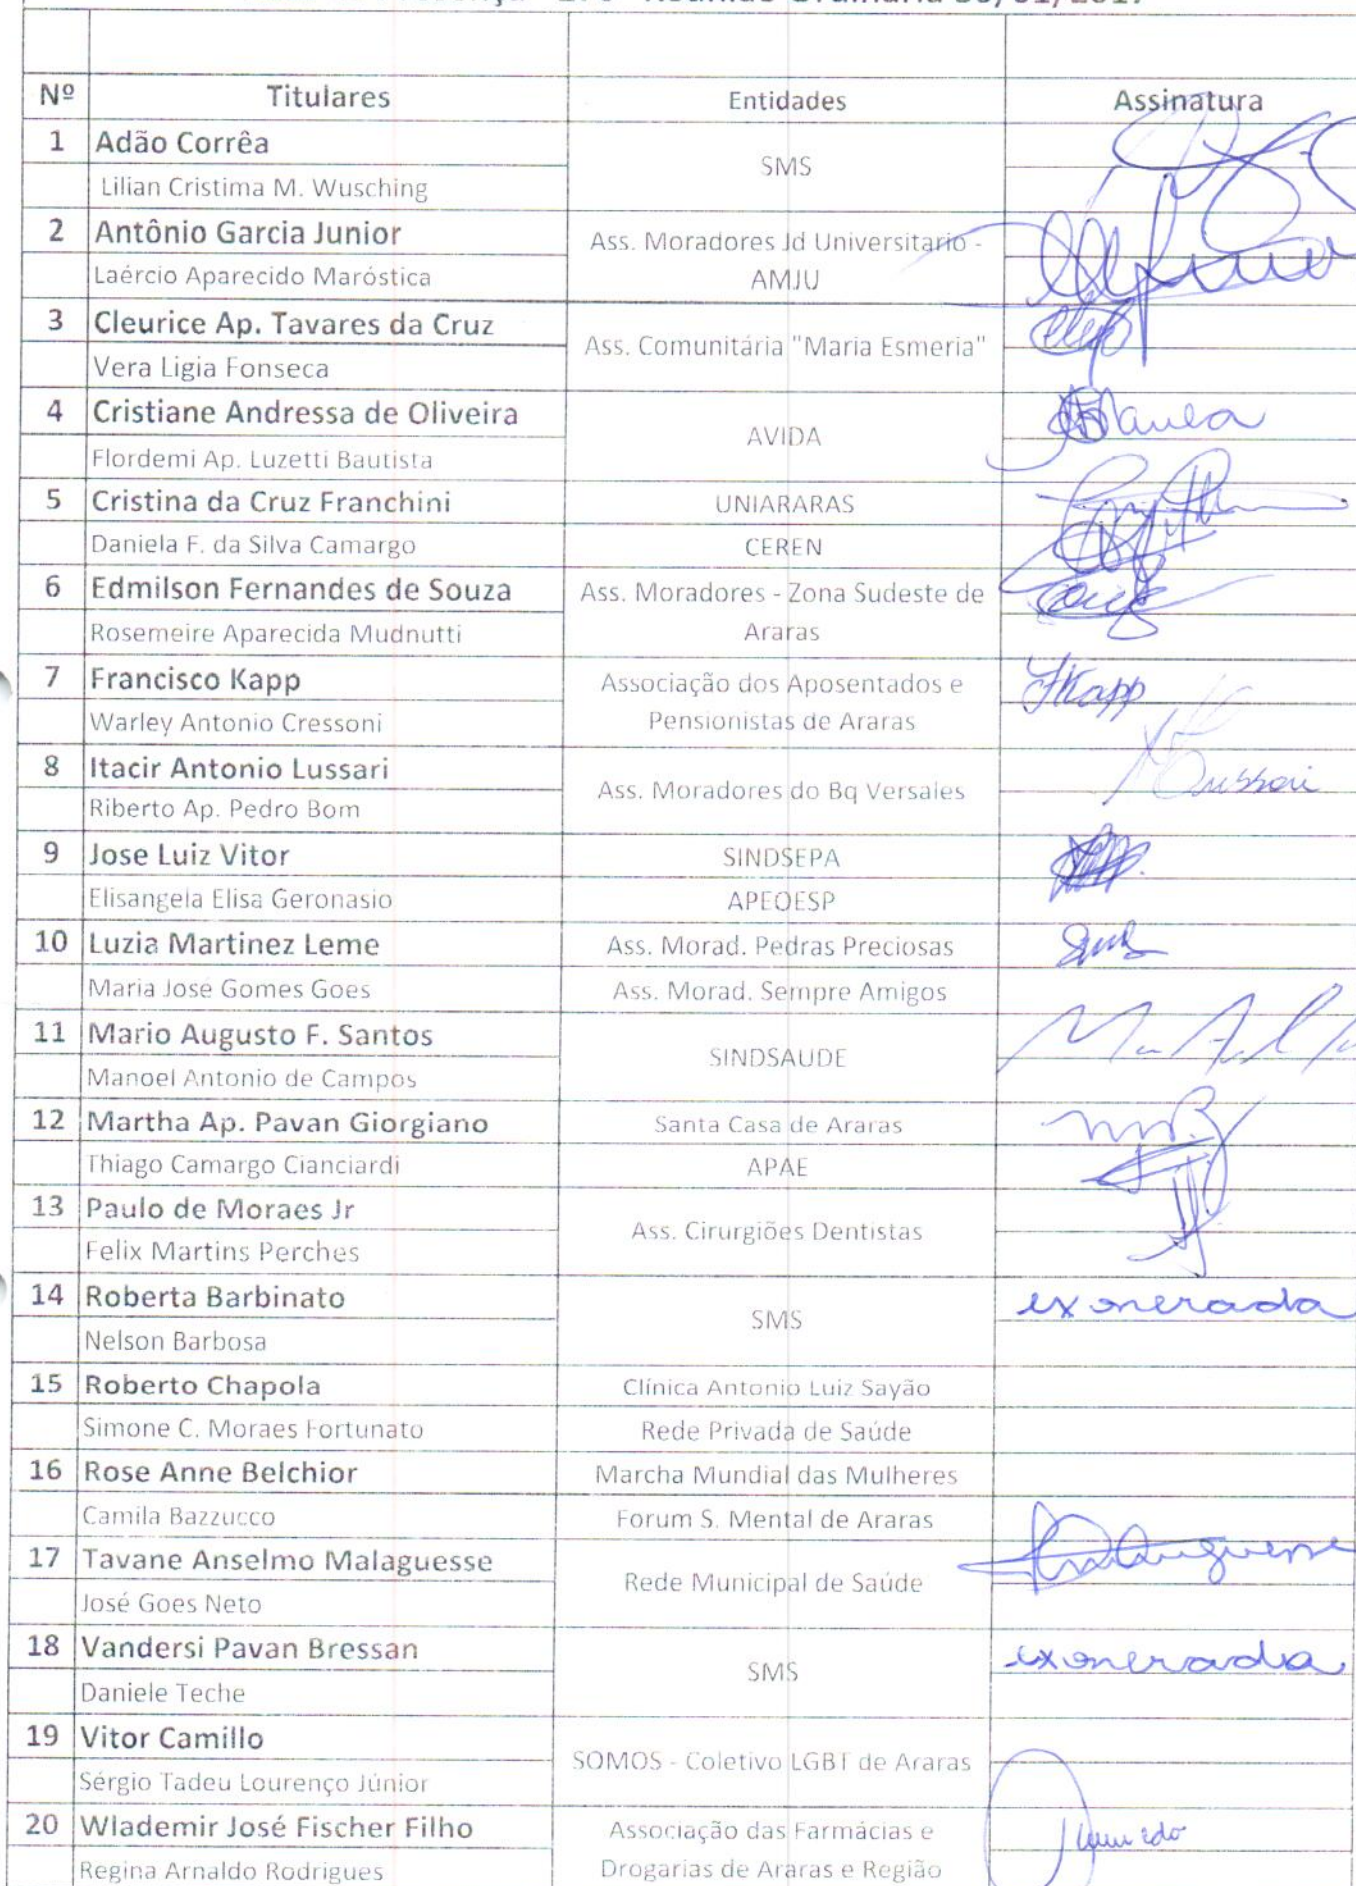 Reunião Ordinária 30/01/2017
Nº Titulares Entidades Assinatura
1 Adão Corrêa
SMS
Lilian Cristima M. Wusching
2 Antônio Garcia Junior
Ass. Moradores Jd Universitario -
Laércio Aparecido Maróstica
AMJU
3 Cleurice Ap. Tavares da Cruz
Ass. Comunitária "Maria Esmeria"
Vera Ligia Fonseca
4 Cristiane Andressa de Oliveira
AVIDA
Flordemi Ap. Luzetti Bautista
5 Cristina da Cruz Franchini UNIARARAS
Daniela F. da Silva Camargo CEREN
6 Edmilson Fernandes de Souza
Ass. Moradores - Zona Sudeste de
Rosemeire Aparecida Mudnutti
Araras
7 Francisco Kapp
Associação dos Aposentados e
FKapp
Warley Antonio Cressoni
Pensionistas de Araras
8 Itacir Antonio Lussari
Ass. Moradores do Bq Versales
Riberto Ap. Pedro Bom
9 Jose Luiz Vitor SINDSEPA
Elisangela Elisa Geronasio APEOESP
10 Luzia Martinez Leme Ass. Morad. Pedras Preciosas
Maria José Gomes Goes Ass. Morad. Sempre Amigos
11 Mario Augusto F. Santos
SINDSAUDE
Manoel Antonio de Campos
12 Martha Ap. Pavan Giorgiano Santa Casa de Araras
Thiago Camargo Cianciardi APAE
13 Paulo de Moraes Jr
Ass. Cirurgiões Dentistas
Felix Martins Perches
14 Roberta Barbinato exonerada
SMS
Nelson Barbosa
15 Roberto Chapola Clínica Antonio Luiz Sayão
Simone C. Moraes Fortunato Rede Privada de Saúde
16 Rose Anne Belchior Marcha Mundial das Mulheres
Camila Bazzucco Forum S. Mental de Araras
17 Tavane Anselmo Malaguesse
Rede Municipal de Saúde
José Goes Neto
18 Vandersi Pavan Bressan exonerada
SMS
Daniele Teche
19 Vitor Camillo
SOMOS - Coletivo LGBT de Araras
Sérgio Tadeu Lourenço Júnior
20 Wlademir José Fischer Filho
Associação das Farmácias e
Regina Arnaldo Rodrigues
Drogarias de Araras e Região